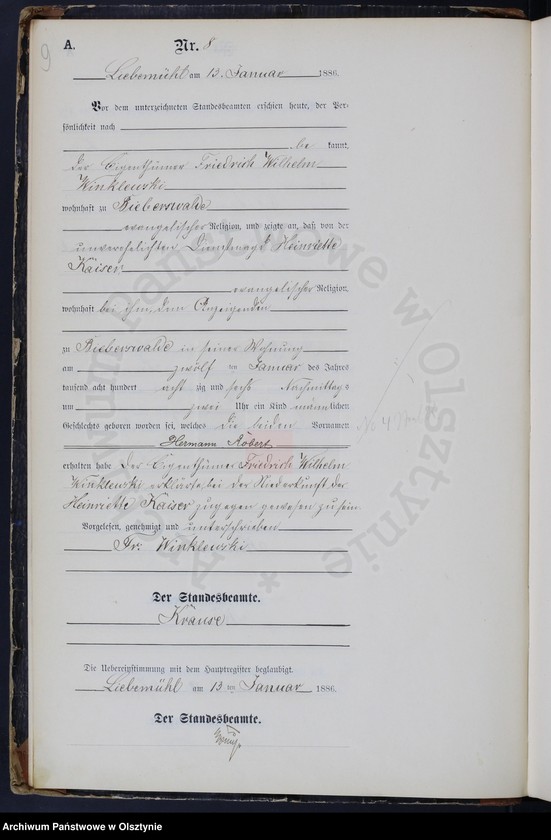 9
A.
Nr. 8
Liebemühl am 13. Januar 1886.
Vor dem unterzeichneten Standesbeamten erschien heute, der Per-
sönlichkeit nach
be kannt,
der Eigenthümer Friedrich Wilhelm
Winklewski
wohnhaft zu Bieberswalde
evangelischer Religion, und zeigte an, daß von der
unverehelichten Dienstmagd Heinriette
Kaiser
evangelischer Religion,
wohnhaft bei ihm, dem Anzeigenden
zu Bieberswalde in seiner Wohnung
am zwölf ten Januar des Jahres
tausend acht hundert acht zig und sechs Nachmittags
um zwei Uhr ein Kind männlichen
Geschlechts geboren worden sei, welches die beiden Vornamen
Hermann Robert
erhalten habe Der Eigenthümer Friedrich Wilhelm
Winklewski erklärte bei der Niederkunft der
Heinriette Kaiser zugegen gewesen zu sein
Vorgelesen, genehmigt und unterschrieben
Fr: Winklewski
Der Standesbeamte.
Krause
Die Uebereinstimmung mit dem Hauptregister beglaubigt.
Liebemühl am 13 ten Januar 1886.
Der Standesbeamte.
Archiwum Państwowe w Olsztynie
Archiwum Państwowe w Olsztynie